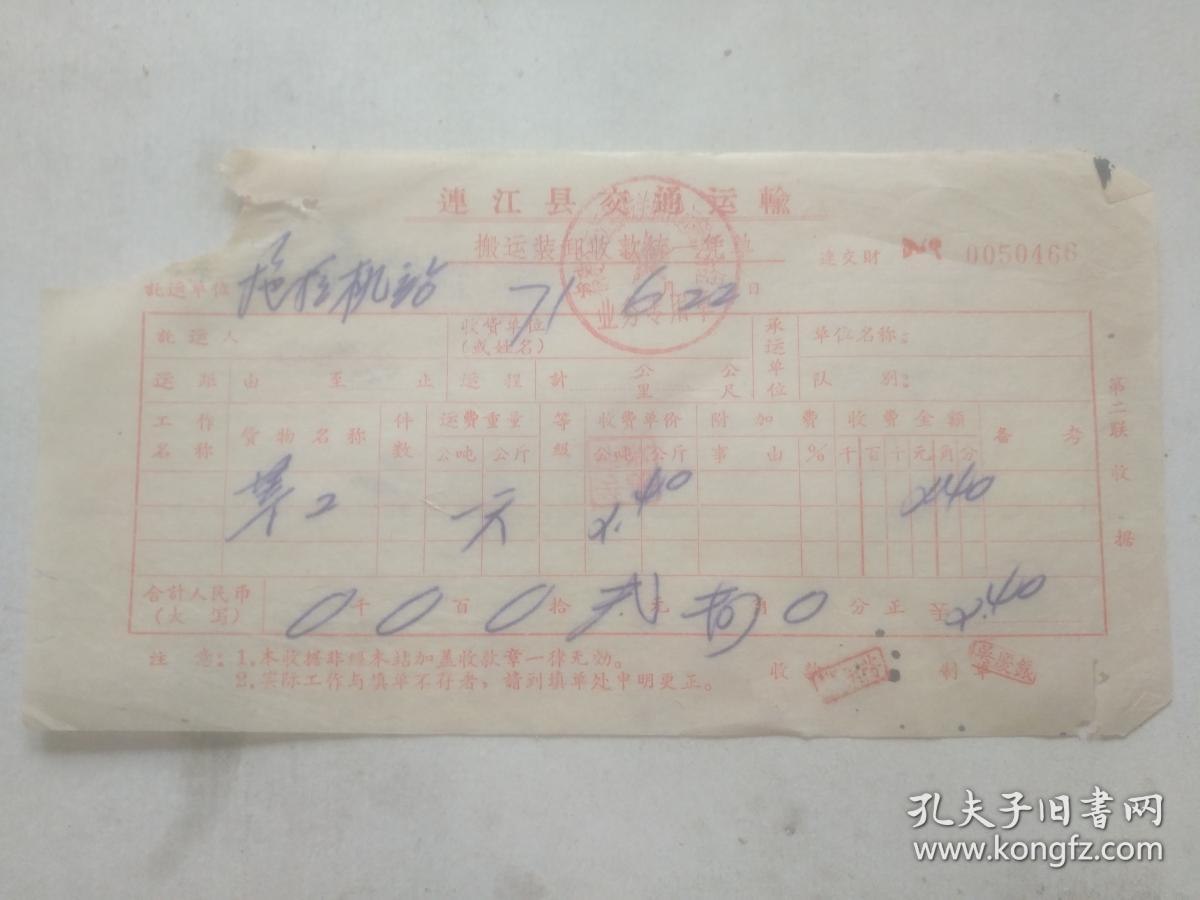 連江县交通运輸
搬运装卸收款统一凭单
連交財 0050466
託运单位 拖拉机站 71年6月22日
託运人 收貨单位（或姓名） 承运单位 单位名称：
运距 由 至 止 运程 計 公里 公尺 队别：
工作名称 貨物名称 件数 运费重量 等級 收费单价 附加费 收费金額 备考
公吨 公斤 公吨 公斤 事由 % 千 百 十 元 角 分
2.40 240
合計人民币（大写） 0千0百0拾弍元肆角0分正 ¥2.40
注意：1.本收据非经本站加盖收款章一律无効。
2.实际工作与填单不符者，請到填单处申明更正。
收款 制单
第二联 收据
业务专用章
孔夫子旧书网
www.kongfz.com